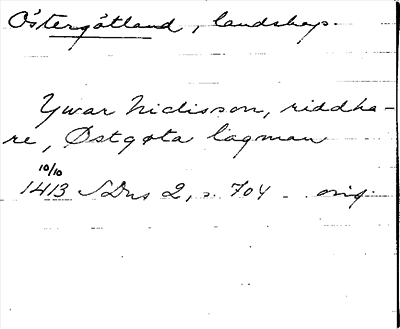 Östergötland, landskap.
Ywar Niclisson, riddha-
re, Østgøta lagman
10/10
1413 SDns 2, s. 704 - orig.